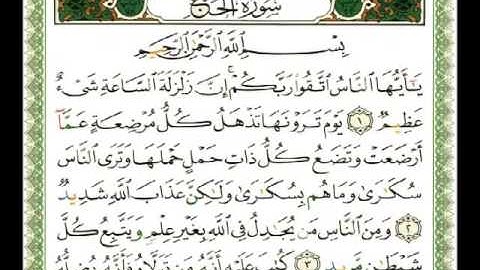 سُورَةُ الْحَجِّ
بِسْمِ اللَّهِ الرَّحْمَٰنِ الرَّحِيمِ
يَٰٓأَيُّهَا النَّاسُ اتَّقُوا رَبَّكُمْ ۚ إِنَّ زَلْزَلَةَ السَّاعَةِ شَيْءٌ
عَظِيمٌ ١ يَوْمَ تَرَوْنَهَا تَذْهَلُ كُلُّ مُرْضِعَةٍ عَمَّآ
أَرْضَعَتْ وَتَضَعُ كُلُّ ذَاتِ حَمْلٍ حَمْلَهَا وَتَرَى النَّاسَ
سُكَٰرَىٰ وَمَا هُم بِسُكَٰرَىٰ وَلَٰكِنَّ عَذَابَ اللَّهِ شَدِيدٌ
٢ وَمِنَ النَّاسِ مَن يُجَٰدِلُ فِي اللَّهِ بِغَيْرِ عِلْمٍ وَيَتَّبِعُ كُلَّ
شَيْطَٰنٍ مَّرِيدٍ ٣ كُتِبَ عَلَيْهِ أَنَّهُ مَن تَوَلَّاهُ فَأَنَّهُ يُضِلُّهُ